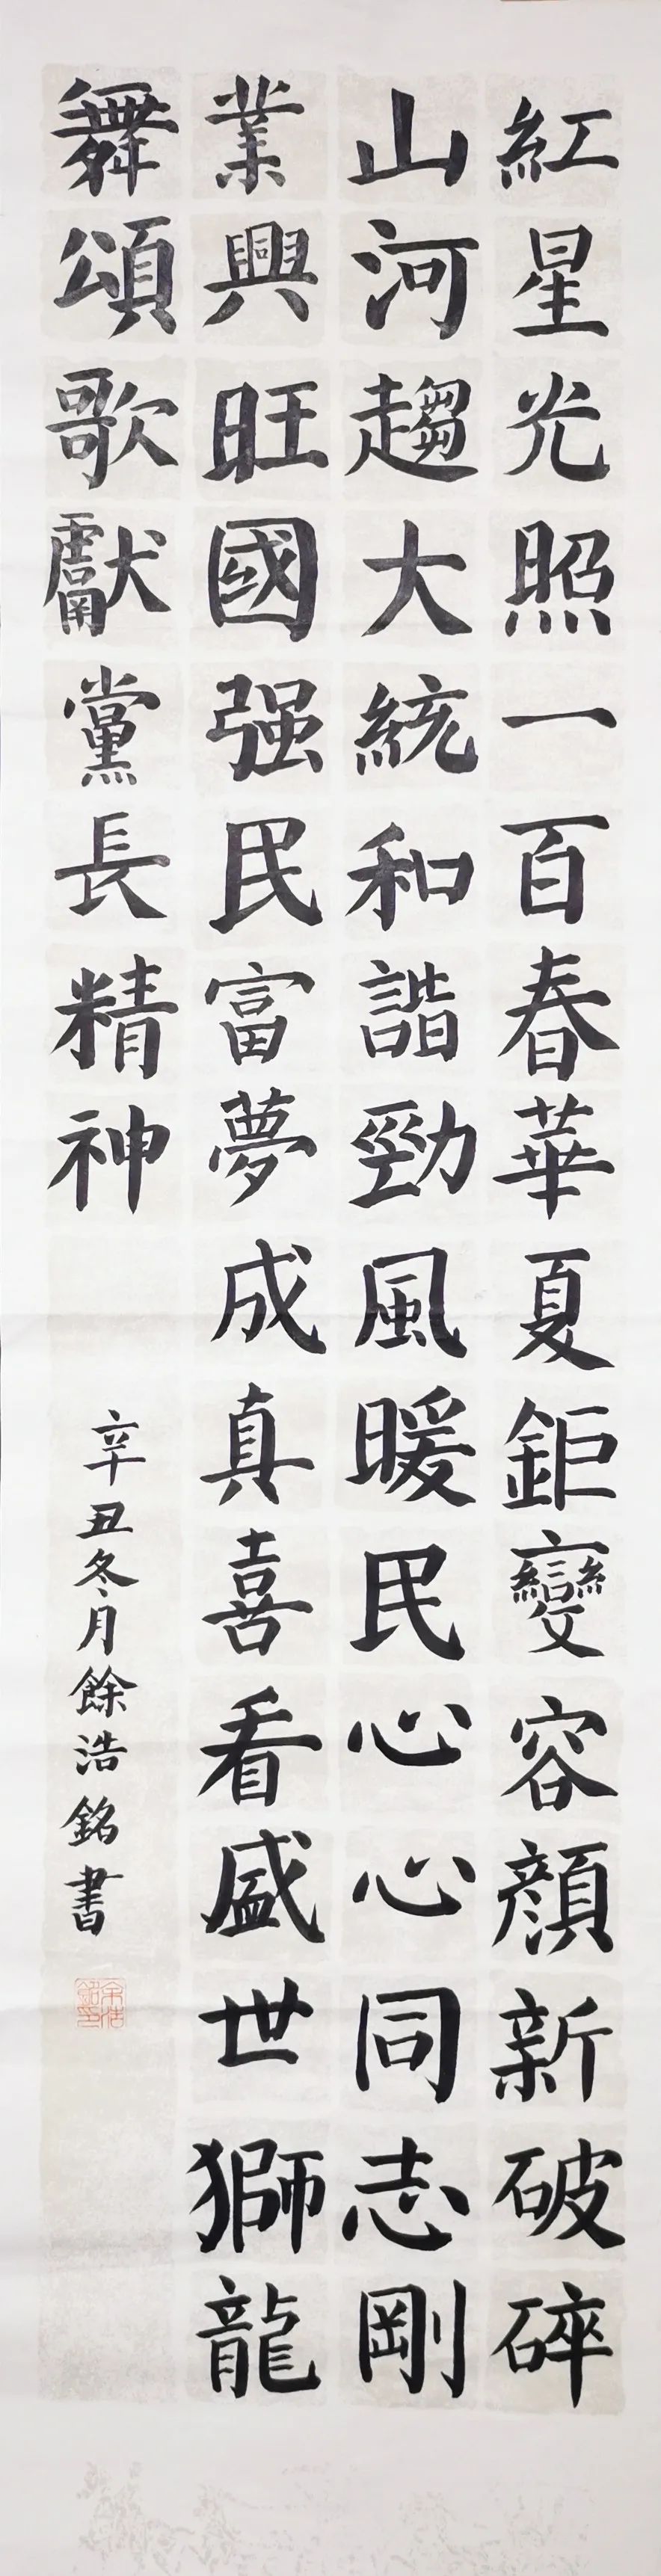 紅星光照一百春華夏鉅變容顏新破碎
山河趨大統和諧勁風暖民心心同志剛
業興旺國强民富夢成真喜看盛世獅龍
舞頌歌獻黨長精神
辛丑冬月餘浩銘書
余浩銘印